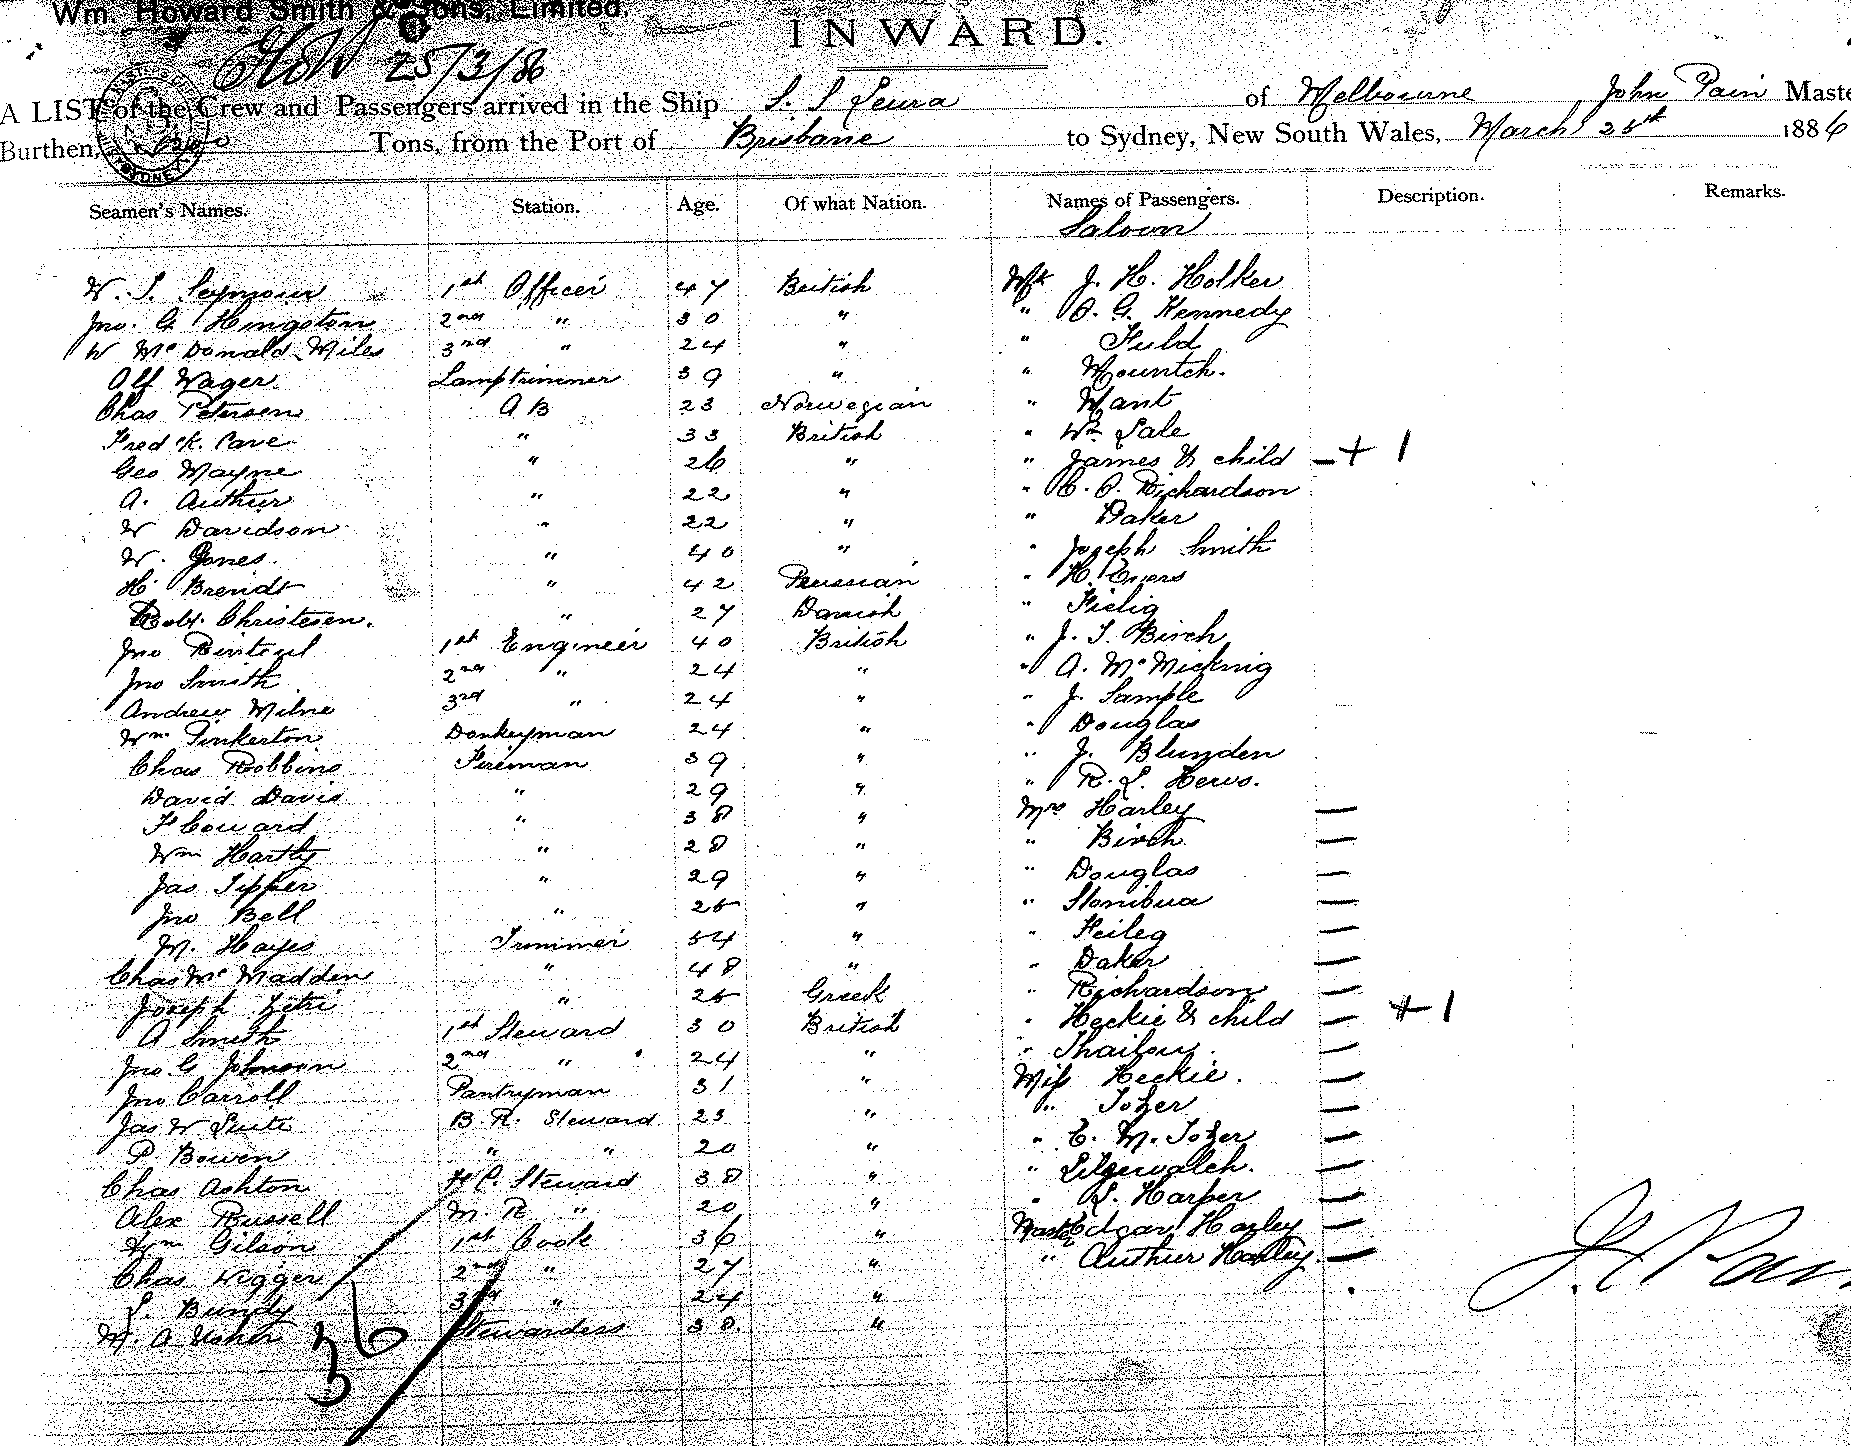 Wm. Howard Smith & Sons, Limited.
INWARD.
25/3/86
A LIST of the Crew and Passengers arrived in the Ship S. S Leura of Melbourne John Pain Maste
Burthen, Tons, from the Port of Brisbane to Sydney, New South Wales, March 25th 1886
Seamen's Names. Station. Age. Of what Nation. Names of Passengers. Description. Remarks.
Saloon
W. S. Seymour 1st Officer 47 British Mr J. H. Holker
Jno. G Hingston 2nd " 30 " " A. G. Kennedy
W McDonald Miles 3rd " 24 " " Fuld
Alf Wager Lamptrimmer 39 " " Mountch.
Chas Petersen A B 23 Norwegian " Want
Fredk. Cave " 33 British " Wm Sale
Geo Mayne " 26 " " James & child — + 1
A. Authur " 22 " " C. A. Richardson
W Davidson " 22 " " Daker
W. Jones " 40 " " Joseph Smith
H. Brendt " 42 Prussian " H. Evers
Robt. Christesen. " 27 Danish " Fielig
Jno Binteul 1st Engineer 40 British " J. S. Birch
Jno Smith 2nd " 24 " " A. McMicknig
Andrew Milne 3rd " 24 " " J. Sample
Wm Pinkerton Donkeyman 24 " " Douglas
Chas Robbins Fireman 39 " " J. Blunden
David Davis " 29 " " R. L. Hews.
F Coward " 38 " Mrs Harley —
Wm Hartly " 28 " " Birch —
Jas Tipper " 29 " " Douglas —
Jno Bell " 25 " " —
M. Hayes Trimmer 54 " " Feileg —
Chas McMadden " 48 " " Daker —
Joseph " 25 Greek " Richardson —
A Smith 1st Steward 30 British " Heckie & child — + 1
Jno. G Johnson 2nd " 24 " " —
Jno Carroll Pantryman 31 " Miss Heckie. —
Jas W B. R. Steward 23 " " Tozer —
P. Bowen " " 20 " " E. M. Tozer —
Chas Ashton F C. Steward 38 " " —
Alex Russell M. R " 20 " " L. Harper —
Wm Gilson 1st Cook 36 " Mastr Edgar Harley —
Chas Wigger 2nd " 27 " " Authur Harley. —
S. Bundy 3rd " 24 "
M. A Usher Stewardess 38 "
36
J. Pain